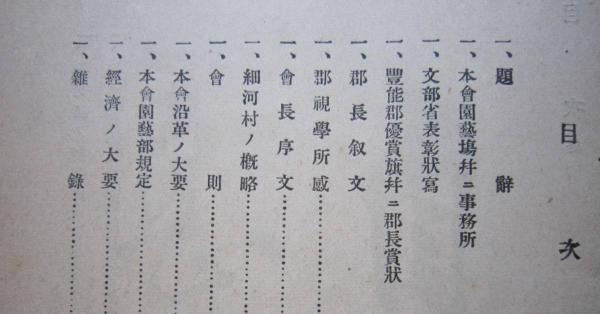 目次
一、題辭
一、本會園藝場幷ニ事務所
一、文部省表彰狀寫
一、豐能郡優賞旗幷ニ郡長賞狀
一、郡長叙文
一、郡視學所感
一、會長序文
一、細河村ノ槪略
一、會則
一、本會沿革ノ大要
一、本會園藝部規定
一、經濟ノ大要
一、雜錄